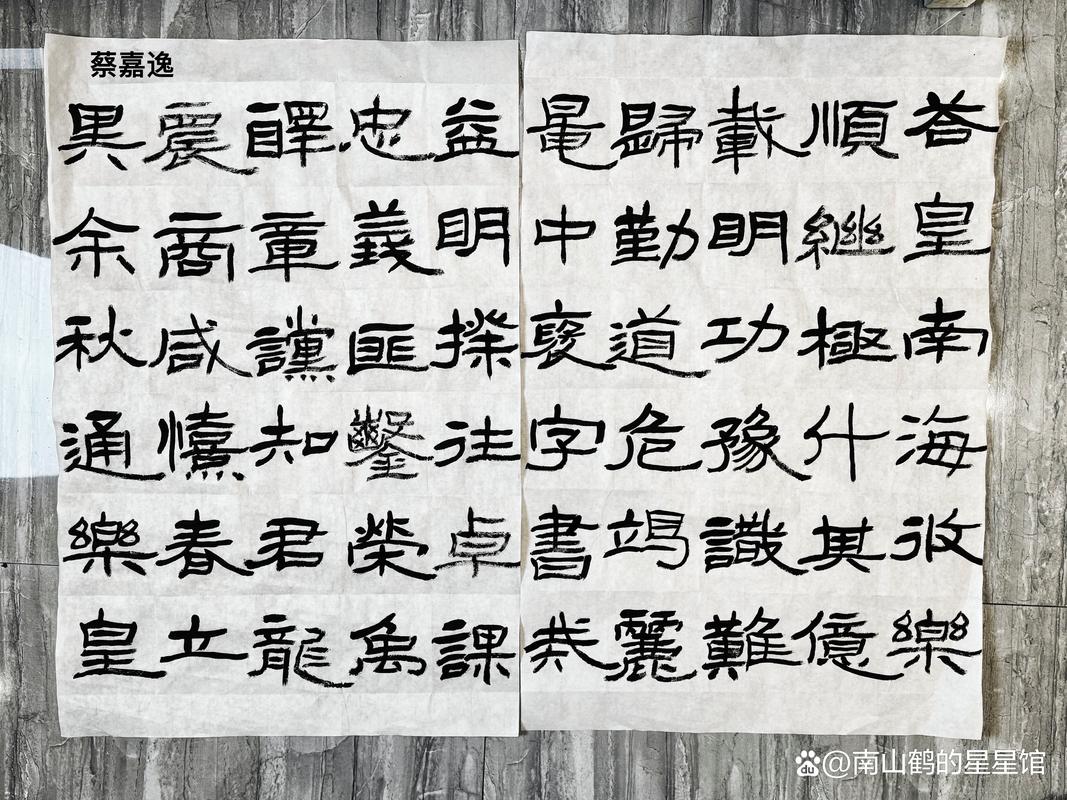 蔡嘉逸
荅皇南海攸樂
順繼極什其億
載明功豫識難
歸勤道危竭麗
中字書
益明揆往卓課
忠義匪鑿榮萬
章讜知君龍
震商咸春立
異余秋通樂皇
du @南山鹤的星星馆